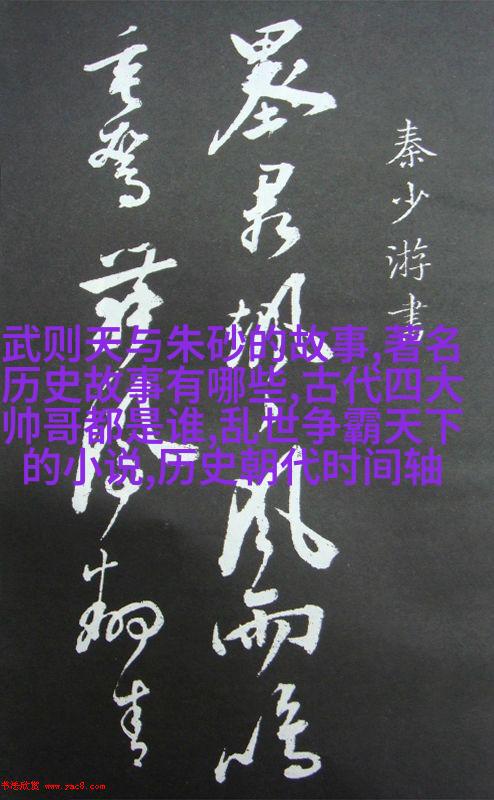 秦少游書
墨君風雨鳴
武则天与朱砂的故事,著名
历史故事有哪些,古代四大
帅哥都是谁,乱世争霸天下
的小说,历史朝代时间轴
书法欣赏 www.yac8.com